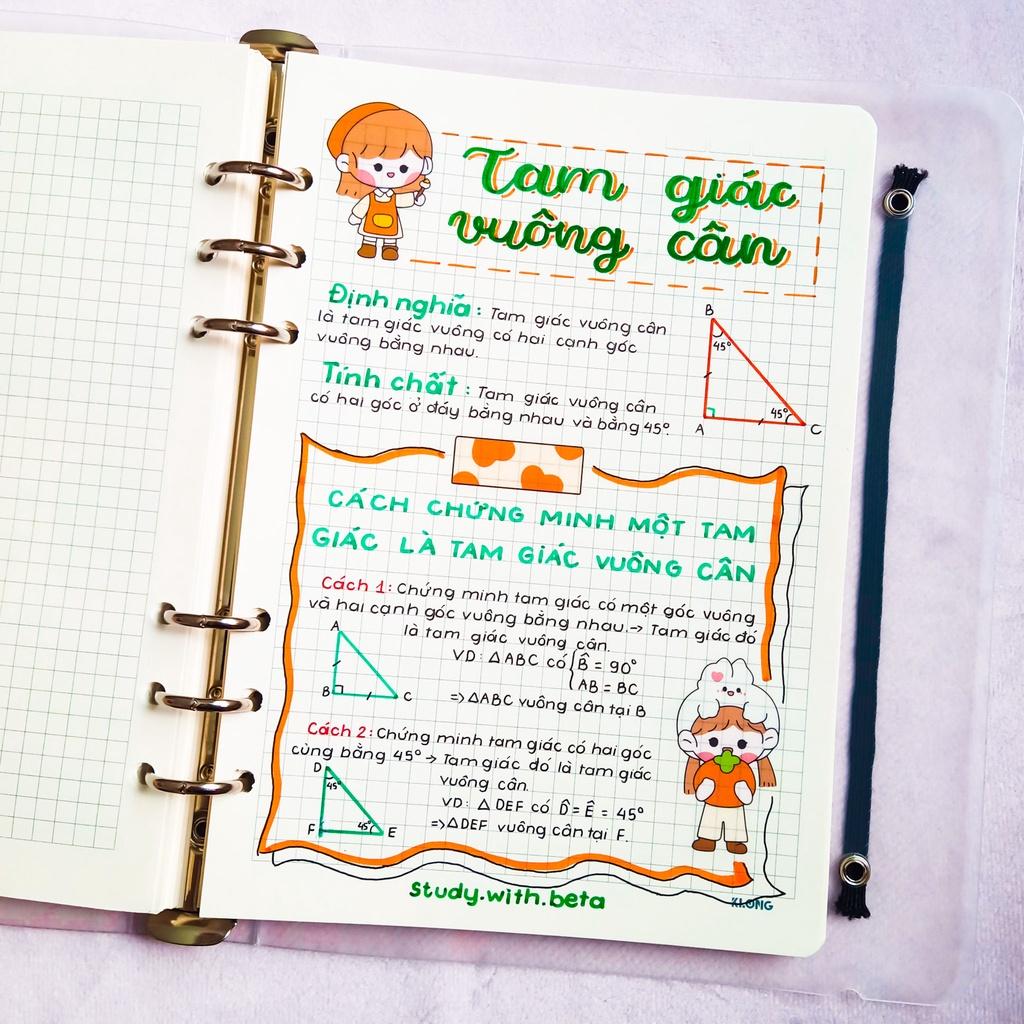 Tam giác
vuông cân
Định nghĩa : Tam giác vuông cân
là tam giác vuông có hai cạnh góc
vuông bằng nhau.
B
45°
45°
A
C
Tính chất : Tam giác vuông cân
có hai góc ở đáy bằng nhau và bằng 45°.
CÁCH CHỨNG MINH MỘT TAM
GIÁC LÀ TAM GIÁC VUÔNG CÂN
Cách 1: Chứng minh tam giác có một góc vuông
và hai cạnh góc vuông bằng nhau.→ Tam giác đó
là tam giác vuông cân.
A
B
C
VD: △ABC có { B̂ = 90°
AB = BC
=> △ABC vuông cân tại B
Cách 2: Chứng minh tam giác có hai góc
cùng bằng 45° → Tam giác đó là tam giác
vuông cân.
D
45°
F
45°
E
VD: △DEF có D̂ = Ê = 45°
=> △DEF vuông cân tại F.
study.with.beta
KLONG